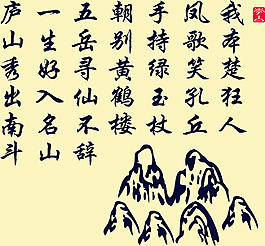 我本楚狂人
凤歌笑孔丘
手持绿玉杖
朝别黄鹤楼
五岳寻仙不辞
一生好入名山
庐山秀出南斗